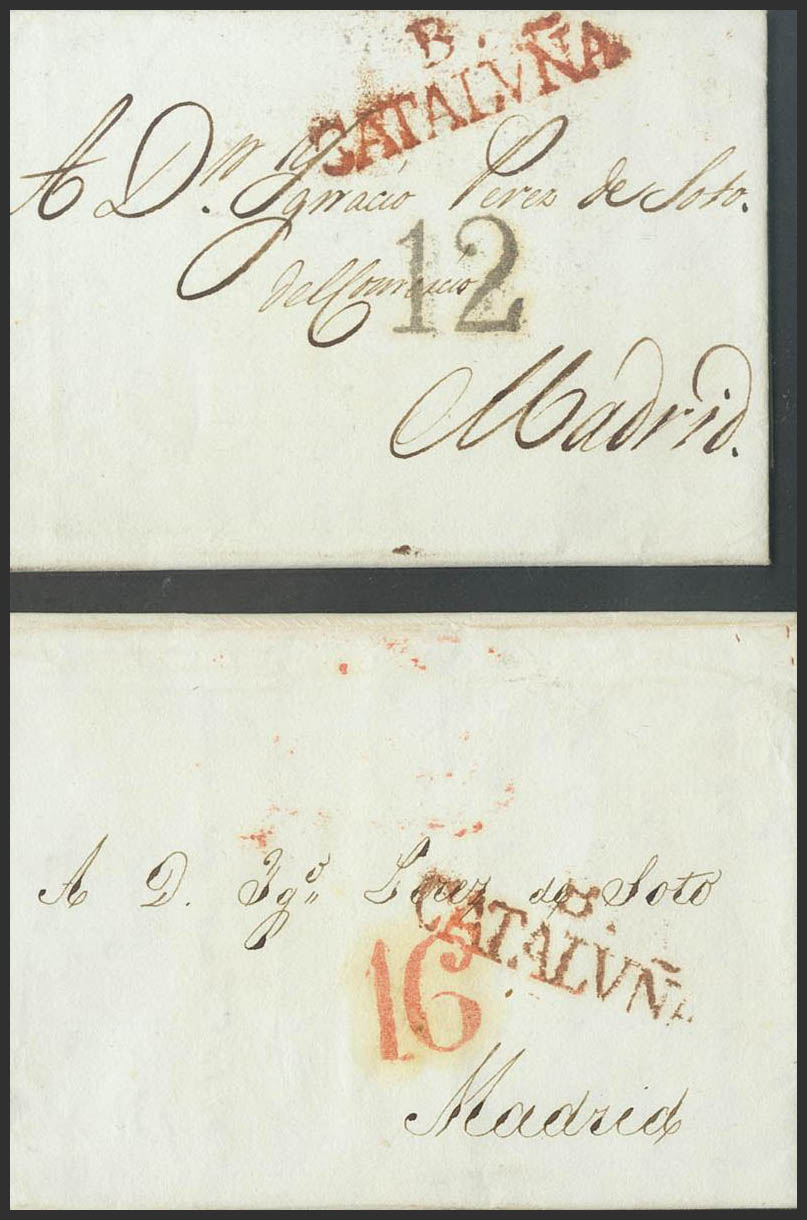 B.
CATALVÑA
A Dⁿ Ygnacio Perez de Soto.
12
del Comercio
Madrid.
A D. Ygº Perez de Soto
B.
CATALVÑA
16
Madrid